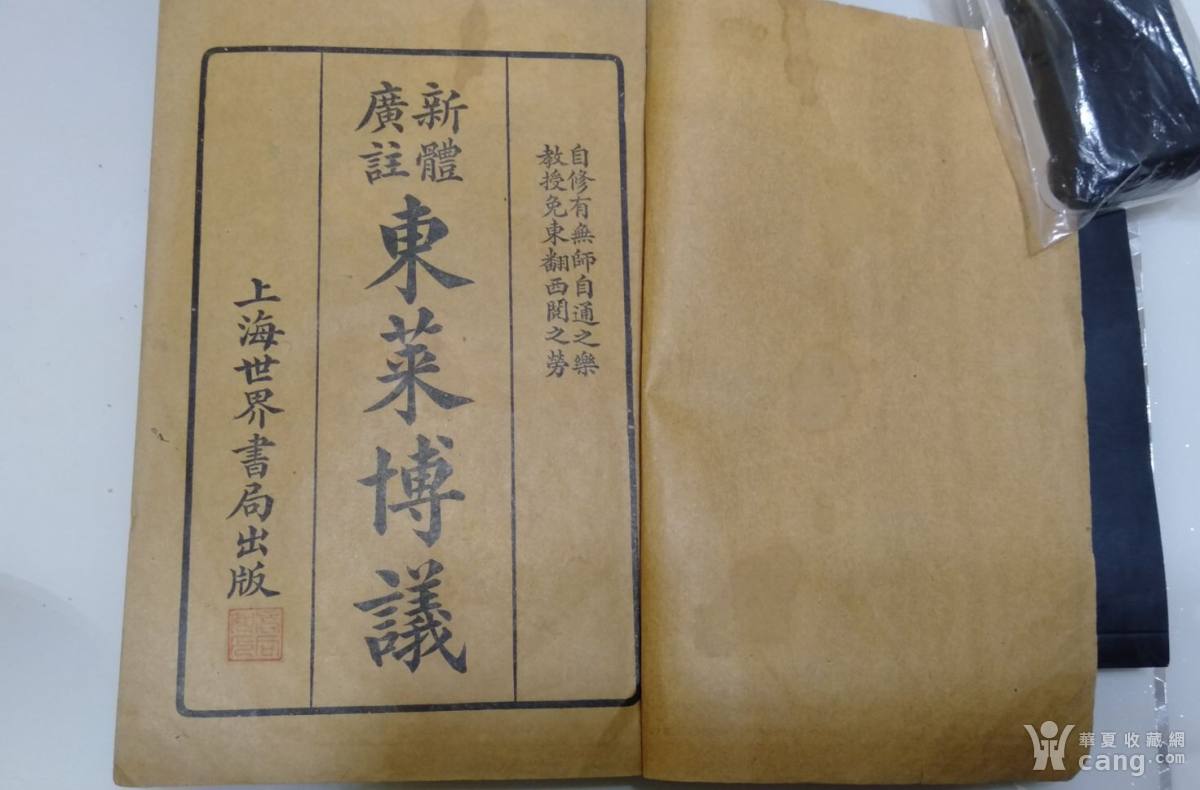 自修有無師自通之樂
教授免東翻西閱之勞
新體
廣註
東萊博議
上海世界書局出版
華夏收藏網
cang.com